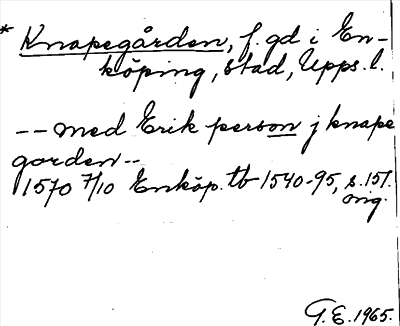 * Knapegården, f. gd i En-
köping, stad, Upps. l.
-- med Erik person j knape
gorden --
1570 7/10 Enköp. tb 1540-95, s. 151.
orig.
G.E. 1965.